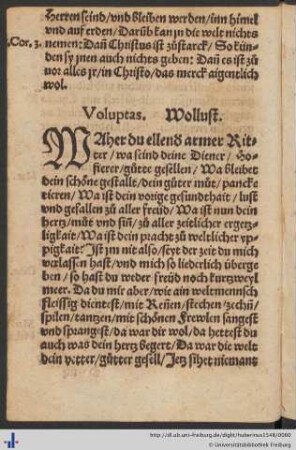 Herren seind/vnd bleiben werden/inn himel
vnd auf erden/Darüb kan jn die welt nichts
.Cor. 3. nemen: Dañ Christus ist zůstarck/So kün-
den sy jnen auch nichts geben: Dañ es ist zů
uor alles jr/in Christo/das merck aigentlich
wol.
Voluptas. Wollust.
WAher du ellend armer Rit-
ter/wa seind deine Diener/Ho-
fierer/gůtte gesellen/Wa bleibet
dein schöne gestallt/dein gůter můt/pancke
tieren/Wa ist dein vorige gesundthait/lust
vnd gefallen zů aller freüd/Wa ist nun dein
hertz/můt vnd siñ/zů aller zeitlicher ergetz-
ligkait/Wa ist dein pracht zů weltlicher yp-
pigkait? Ist jm nit also/seyt der zeit du mich
verlassen hast/vnd mich so liederlich überge
ben/so hast du weder freüd noch kurtzweyl
meer. Da du mir aber/wie ain weltmensch
fleissig dientest/mit Reñen/stechen/zechñ/
spilen/tantzen/mit schönen Frewlen sangest
vnd sprangest/da war dir wol/da hettest du
auch was dein hertz begert/Da war die welt
dein vetter/gůtter gesell/Jetz sihet niemant
http://dl.ub.uni-freiburg.de/diglit/huberinus1548/0060
© Universitätsbibliothek Freiburg